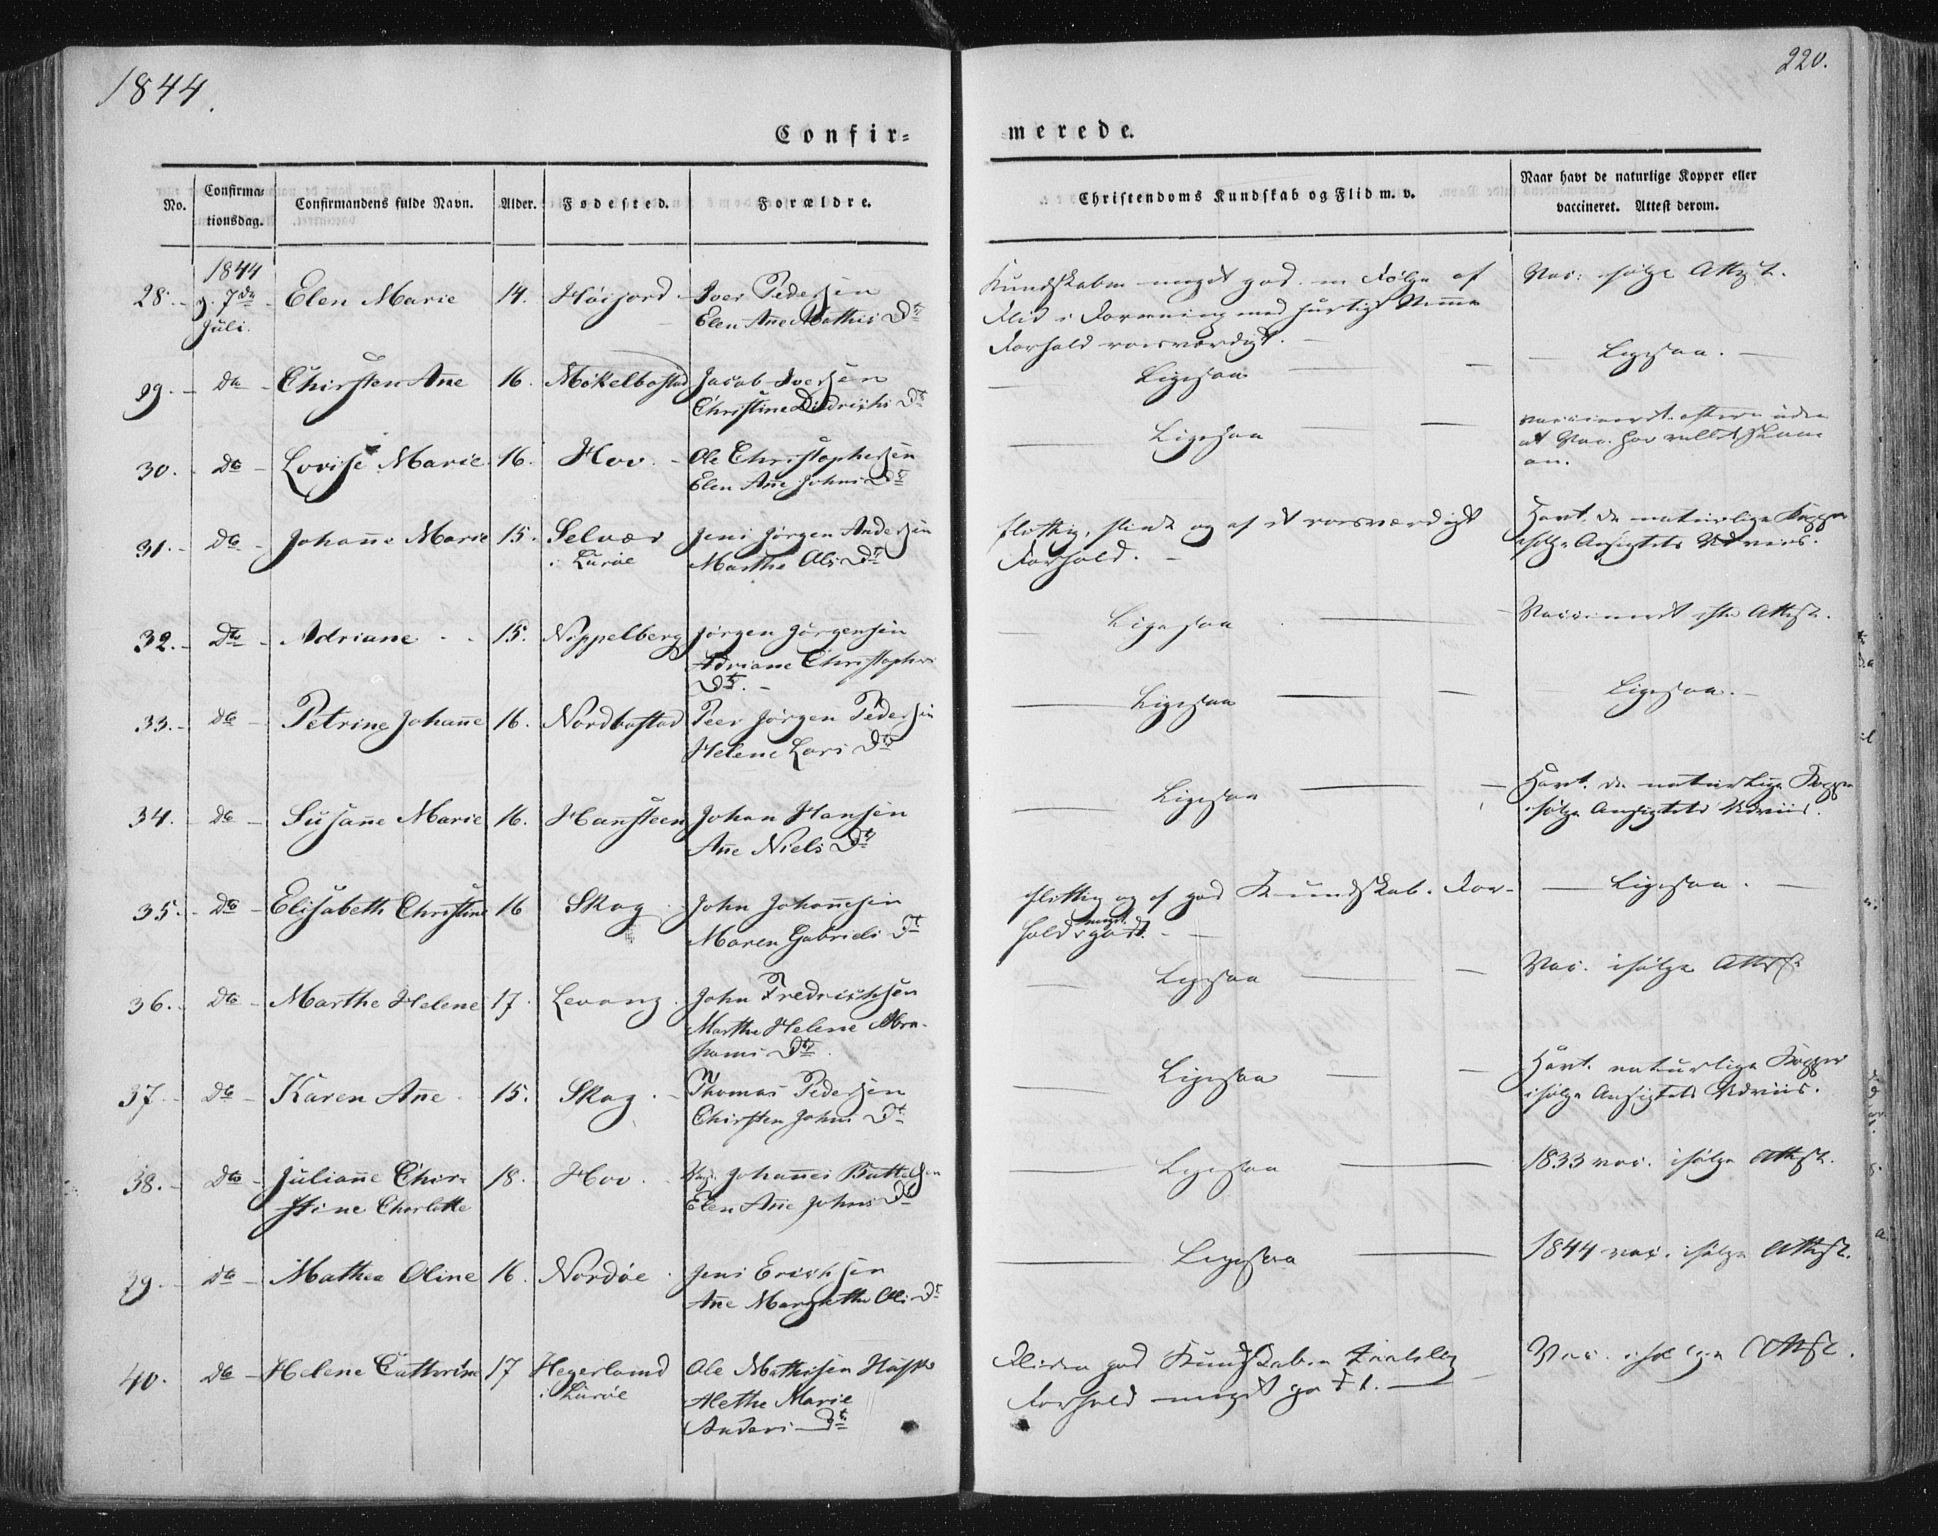 1844.
220.
Confir=
merede.
No.
Confirma-
tionsdag.
Confirmandens fulde Navn.
Alder.
Fødested.
Forældre.
Christendoms Kundskab og Flid m. v.
Naar havt de naturlige Kopper eller
vaccineret. Attest derom.
1844
28. 7de Elen Marie 14. Høifjord Iver Pedersen
Juli. Elen Ane Mathis Dr
Kundskaben meget god en Følge af
Flid i Forening med hurtigt Nemme
Forhold roesværdigt.
Vac: ifølge Attest.
29. Do Chirsten Ane 16. Møkelbostad Jacob Iversen
Christine Didrichs Dr
Ligesaa
Ligesaa.
30. Do Lovise Marie 16. Hov. Ole Christophersen
Elen Ane Johns Dr
Ligesaa
at Vac. har villet slaae
an.
31. Do Johane Marie 15. Selvær Jens Jørgen Andersen
i Lurøe Marthe Ols Dr
flittig, og af et roesværdigt
Forhold.
Havt de naturlige Kopper
ifølge Ansigtets Udviis.
32. Do Adriane 15. Nippelberg Jørgen Jørgensen
Adriane Christophers
Dr.
Ligesaa
Vaccineret Attest.
33. Do Petrine Johane 16. Nordbostad Peer Jørgen Pedersen
Helene Lars Dr
Ligesaa
Ligesaa.
34. Do Susane Marie 16. Hansteen Johan Hansen
Ane Niels Dr
Ligesaa
Havt de naturlige Kopper
ifølge Ansigtets Udviis.
35. Do Elisabeth Christine 16 Skog John Johanesen
Maren Gabriels Dr
flittig og af god Kundskab. For-
hold meget godt.
Ligesaa.
36. Do Marthe Helene 17. Levang John Fredrichsen
Marthe Helene Abra-
hams Dr.
Ligesaa
Vac. ifølge Attest
37. Do Karen Ane 15. Skog. Thomas Pedersen
Chirsten Johns Dr
Ligesaa
Havt naturlige Kopper
ifølge Ansigtets Udviis.
38. Do Juliane Chir- 18. Hov. Johanes Buttelsen
stine Charlotte Elen Ane Johns Dr
Ligesaa
1833 vac. ifølge Attest.
39. Do Mathea Oline 16. Nordøe Jens Erichsen
Ane Margrethe Ols Dr
Ligesaa
1844 vac. ifølge Attest.
40. Do Helene Cathrine 17 Hegerland Ole Mathisen
i Lurøe Alethe Marie
Anders Dr
Fliden god Kundskaben
Forhold meget godt.
Vac. ifølge Attest.